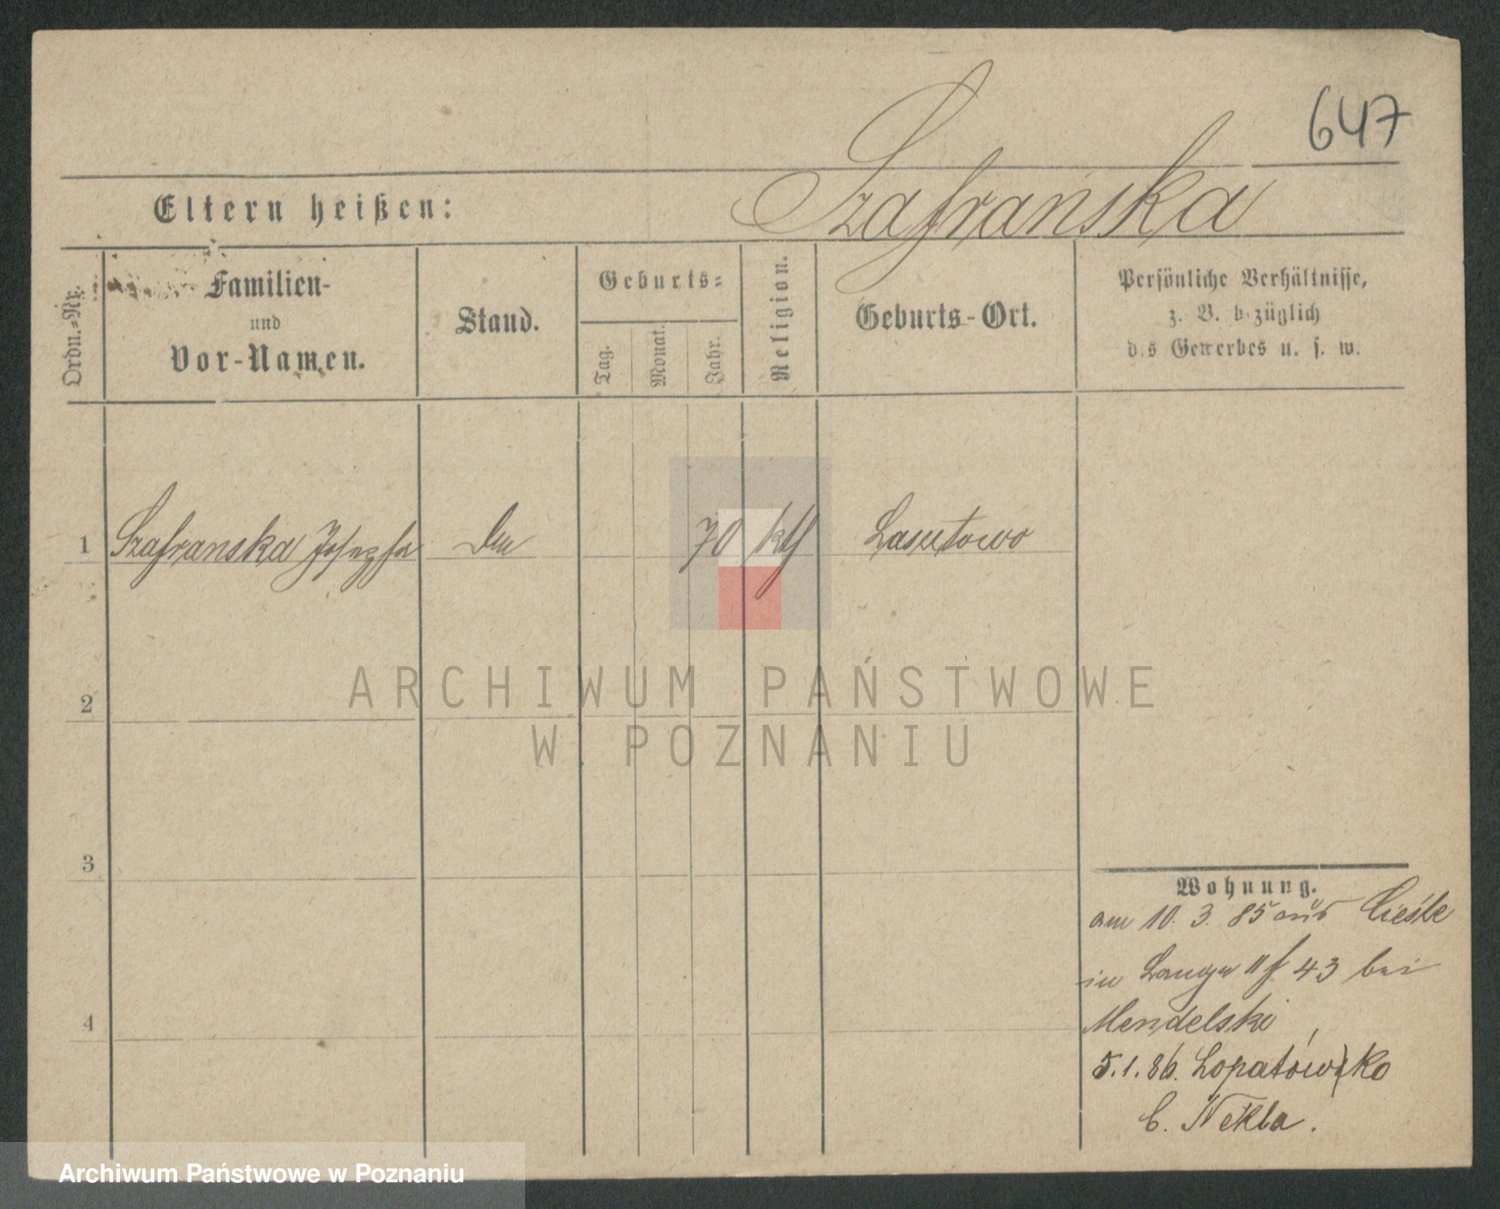 647
Szafranska
Eltern heißen:
Ordn.-Nr.
Familien-
und
Vor-Namen.
Stand.
Geburts-
Tag.
Monat.
Jahr.
Religion.
Geburts-Ort.
Persönliche Verhältnisse,
z. B. bezüglich
des Gewerbes u. s. w.
1 Szafranska Josepha 70 kth Lasutowo
2
3
4
Wohnung.
am 10. 3. 85 aus Cieśle
in 43 bei
Mendelski
5.1.86. Lopatówko
b. Nekla.
ARCHIWUM PAŃSTWOWE
W POZNANIU
Archiwum Państwowe w Poznaniu